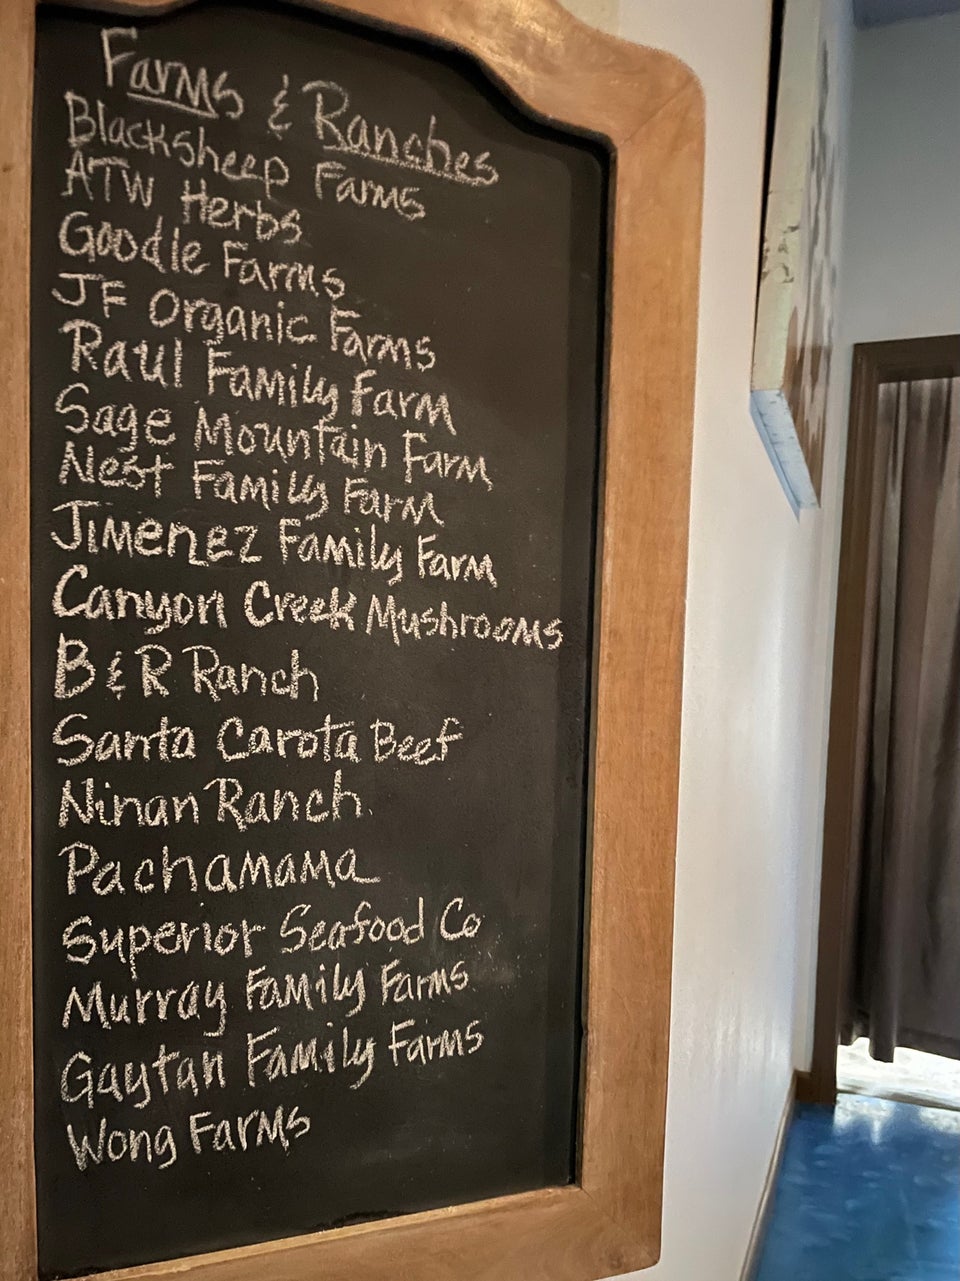 Farms & Ranches
Blacksheep Farms
ATW Herbs
Goodle Farms
JF Organic Farms
Raul Family Farm
Sage Mountain Farm
Nest Family Farm
Jimenez Family Farm
Canyon Creek Mushrooms
B & R Ranch
Santa Carota Beef
Ninan Ranch
Pachamama
Superior Seafood Co
Murray Family Farms
Gaytan Family Farms
Wong Farms